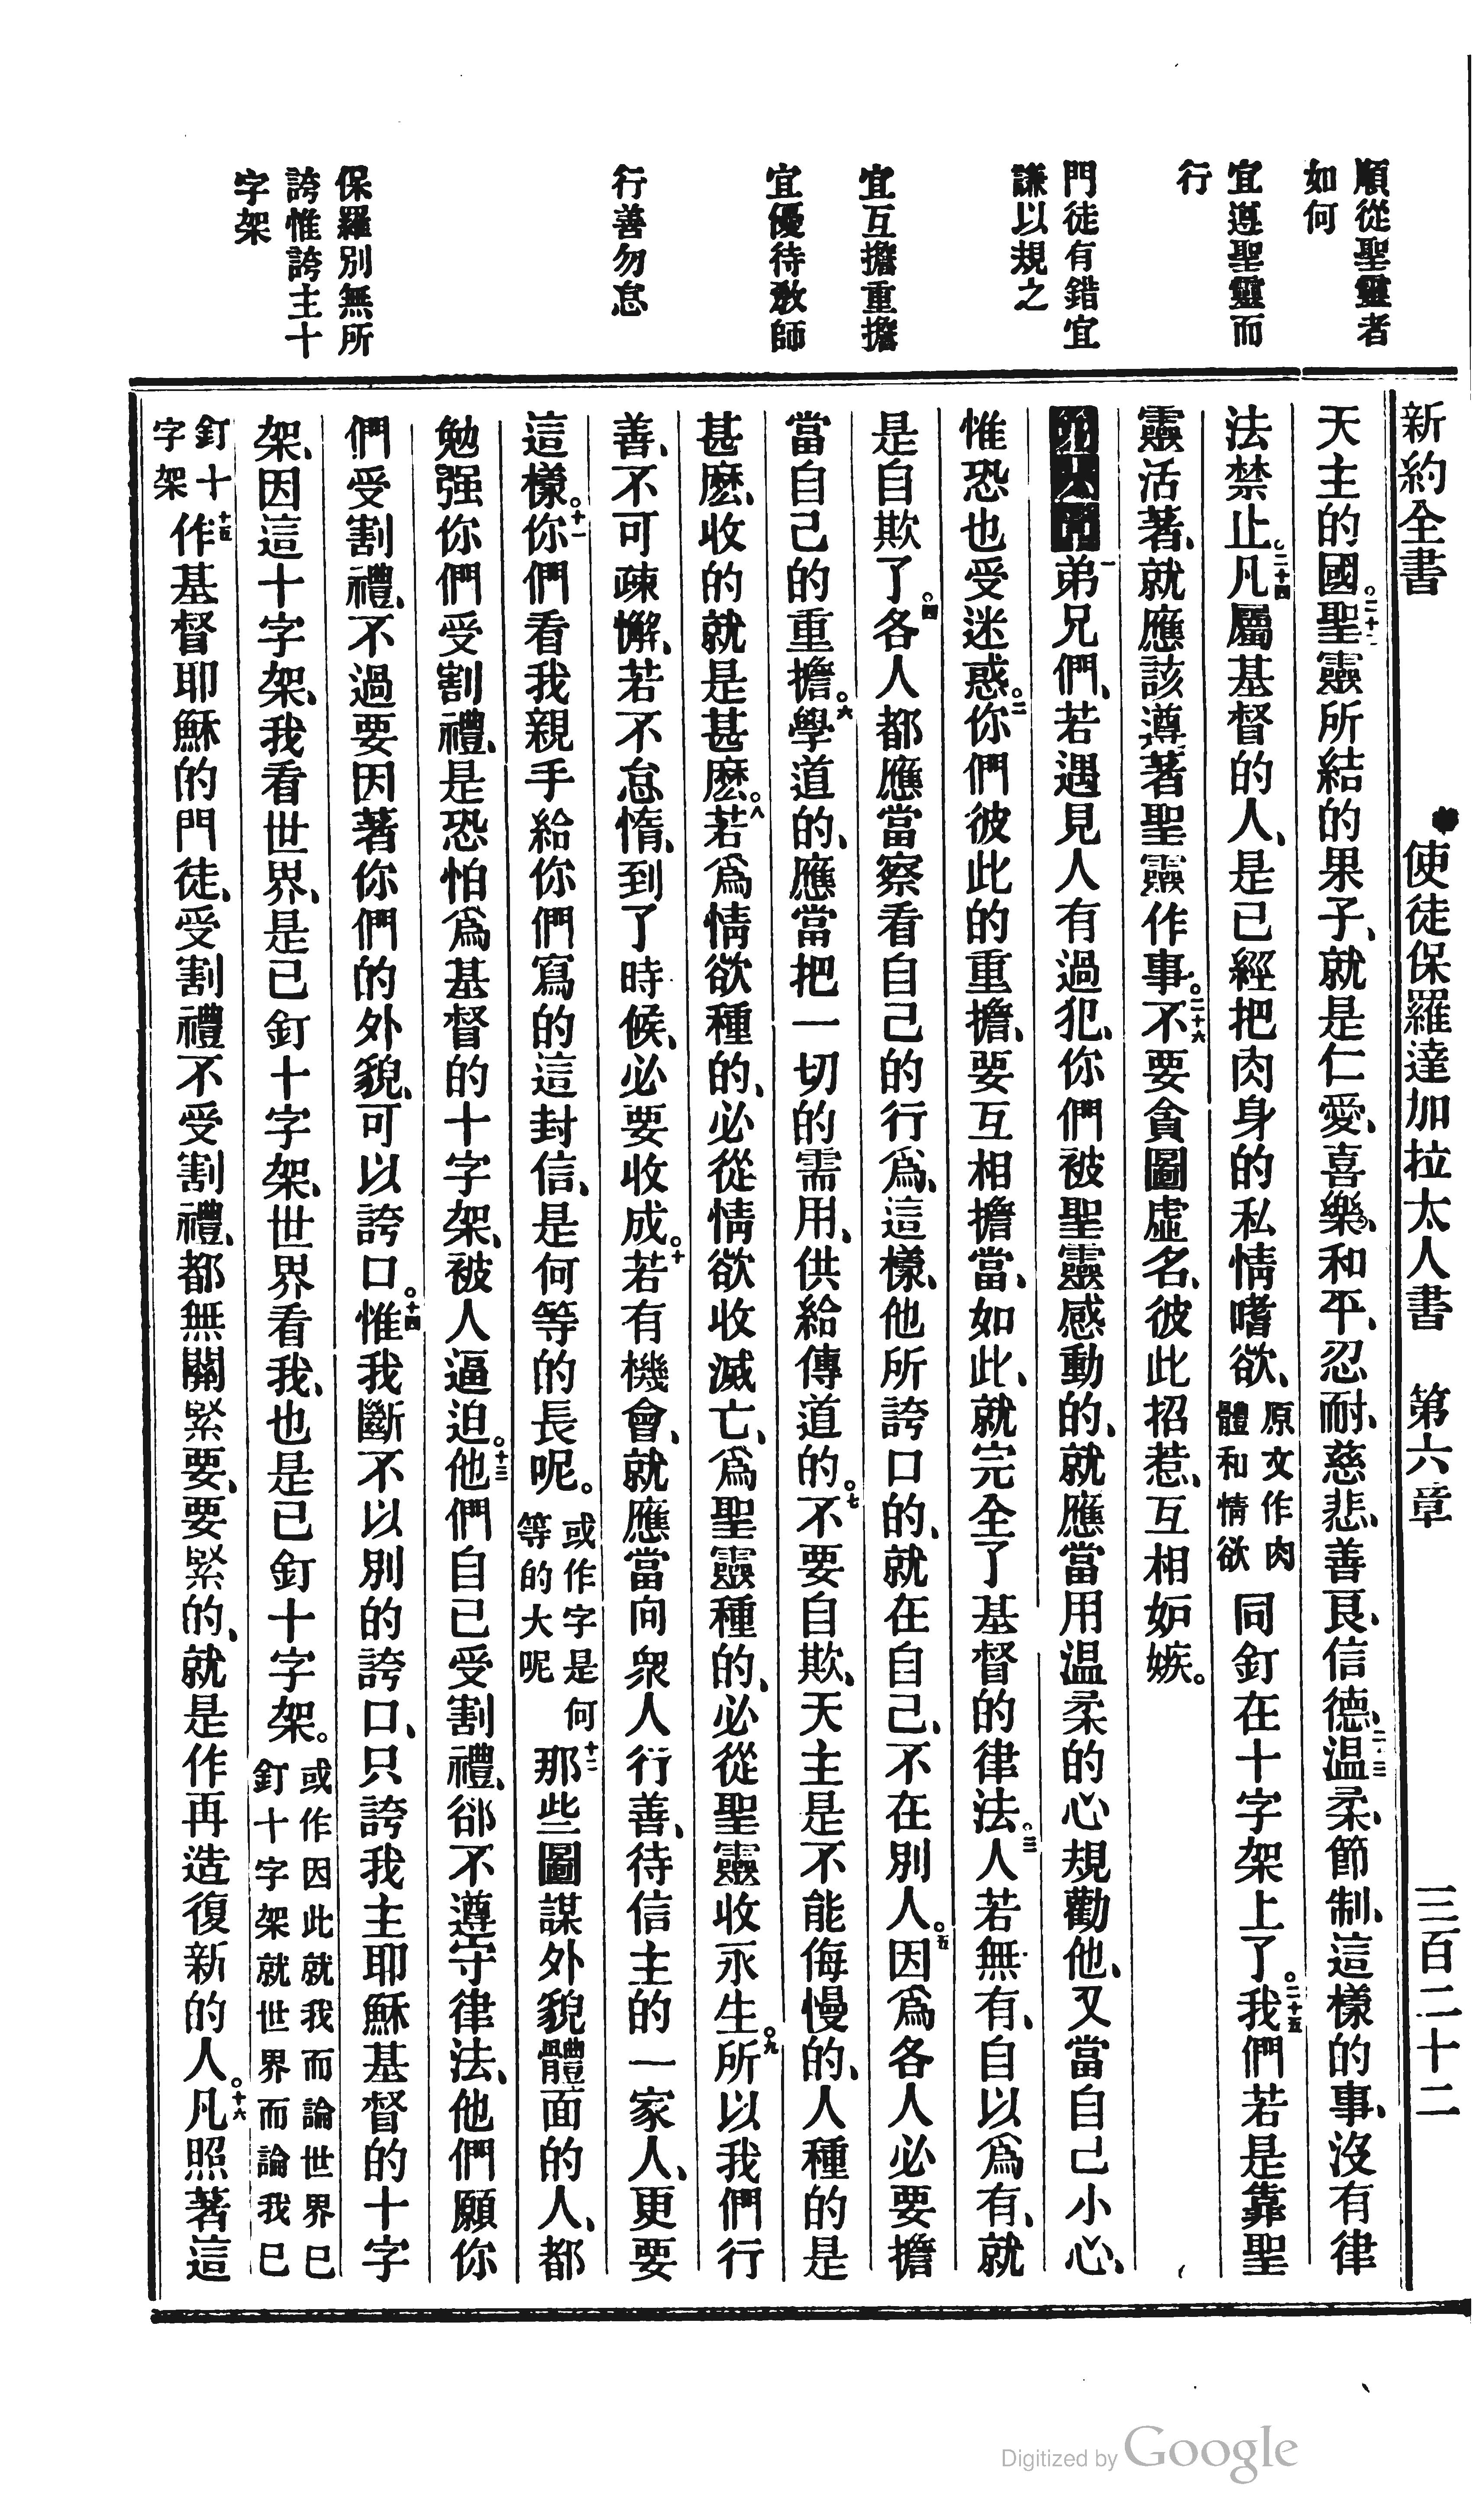 順從聖靈者
如何
宜遵聖靈而
行
門徒有錯宜
謙以規之
宜互擔重擔
宜優待敎師
行善勿怠
保羅別無所
誇惟誇主十
字架
新約全書 使徒保羅達加拉太人書 第六章 三百二十二
天主的國。二十二聖靈所結的果子、就是仁愛、喜樂、和平、忍耐、慈悲、善良、信德、二十三温柔、節制、這樣的事、沒有律
法禁止。二十四凡屬基督的人、是已經把肉身的私情嗜欲、原文作肉體和情欲同釘在十字架上了。二十五我們若是靠聖
靈活著、就應該遵著聖靈作事。二十六不要貪圖虛名、彼此招惹、互相妬嫉。
第六章一弟兄們、若遇見人有過犯、你們被聖靈感動的、就應當用温柔的心規勸他、又當自己小心、
惟恐也受迷惑。二你們彼此的重擔、要互相擔當、如此、就完全了基督的律法。三人若無有、自以爲有、就
是自欺了。四各人都應當察看自己的行爲、這樣、他所誇口的、就在自己、不在別人。五因爲各人必要擔
當自己的重擔。六學道的、應當把一切的需用、供給傳道的。七不要自欺、天主是不能侮慢的、人種的是
甚麽、收的就是甚麽。八若爲情欲種的、必從情欲收滅亡、爲聖靈種的、必從聖靈收永生。九所以我們行
善、不可疎懈、若不怠惰、到了時候、必要收成。十若有機會、就應當向衆人行善、待信主的一家人、更要
這樣。十一你們看我親手給你們寫的這封信、是何等的長呢。或作字是何等的大呢十二那些圖謀外貌體面的人、都
勉强你們受割禮、是恐怕爲基督的十字架、被人逼迫。十三他們自已受割禮、卻不遵守律法、他們願你
們受割禮、不過要因著你們的外貌、可以誇口。十四惟我斷不以別的誇口、只誇我主耶穌基督的十字
架、因這十字架、我看世界、是已釘十字架、世界看我、也是已釘十字架。或作因此就我而論世界已釘十字架就世界而論我已
釘十字架十五作基督耶穌的門徒、受割禮不受割禮、都無關緊要、要緊的、就是作再造復新的人。十六凡照著這
Digitized by Google